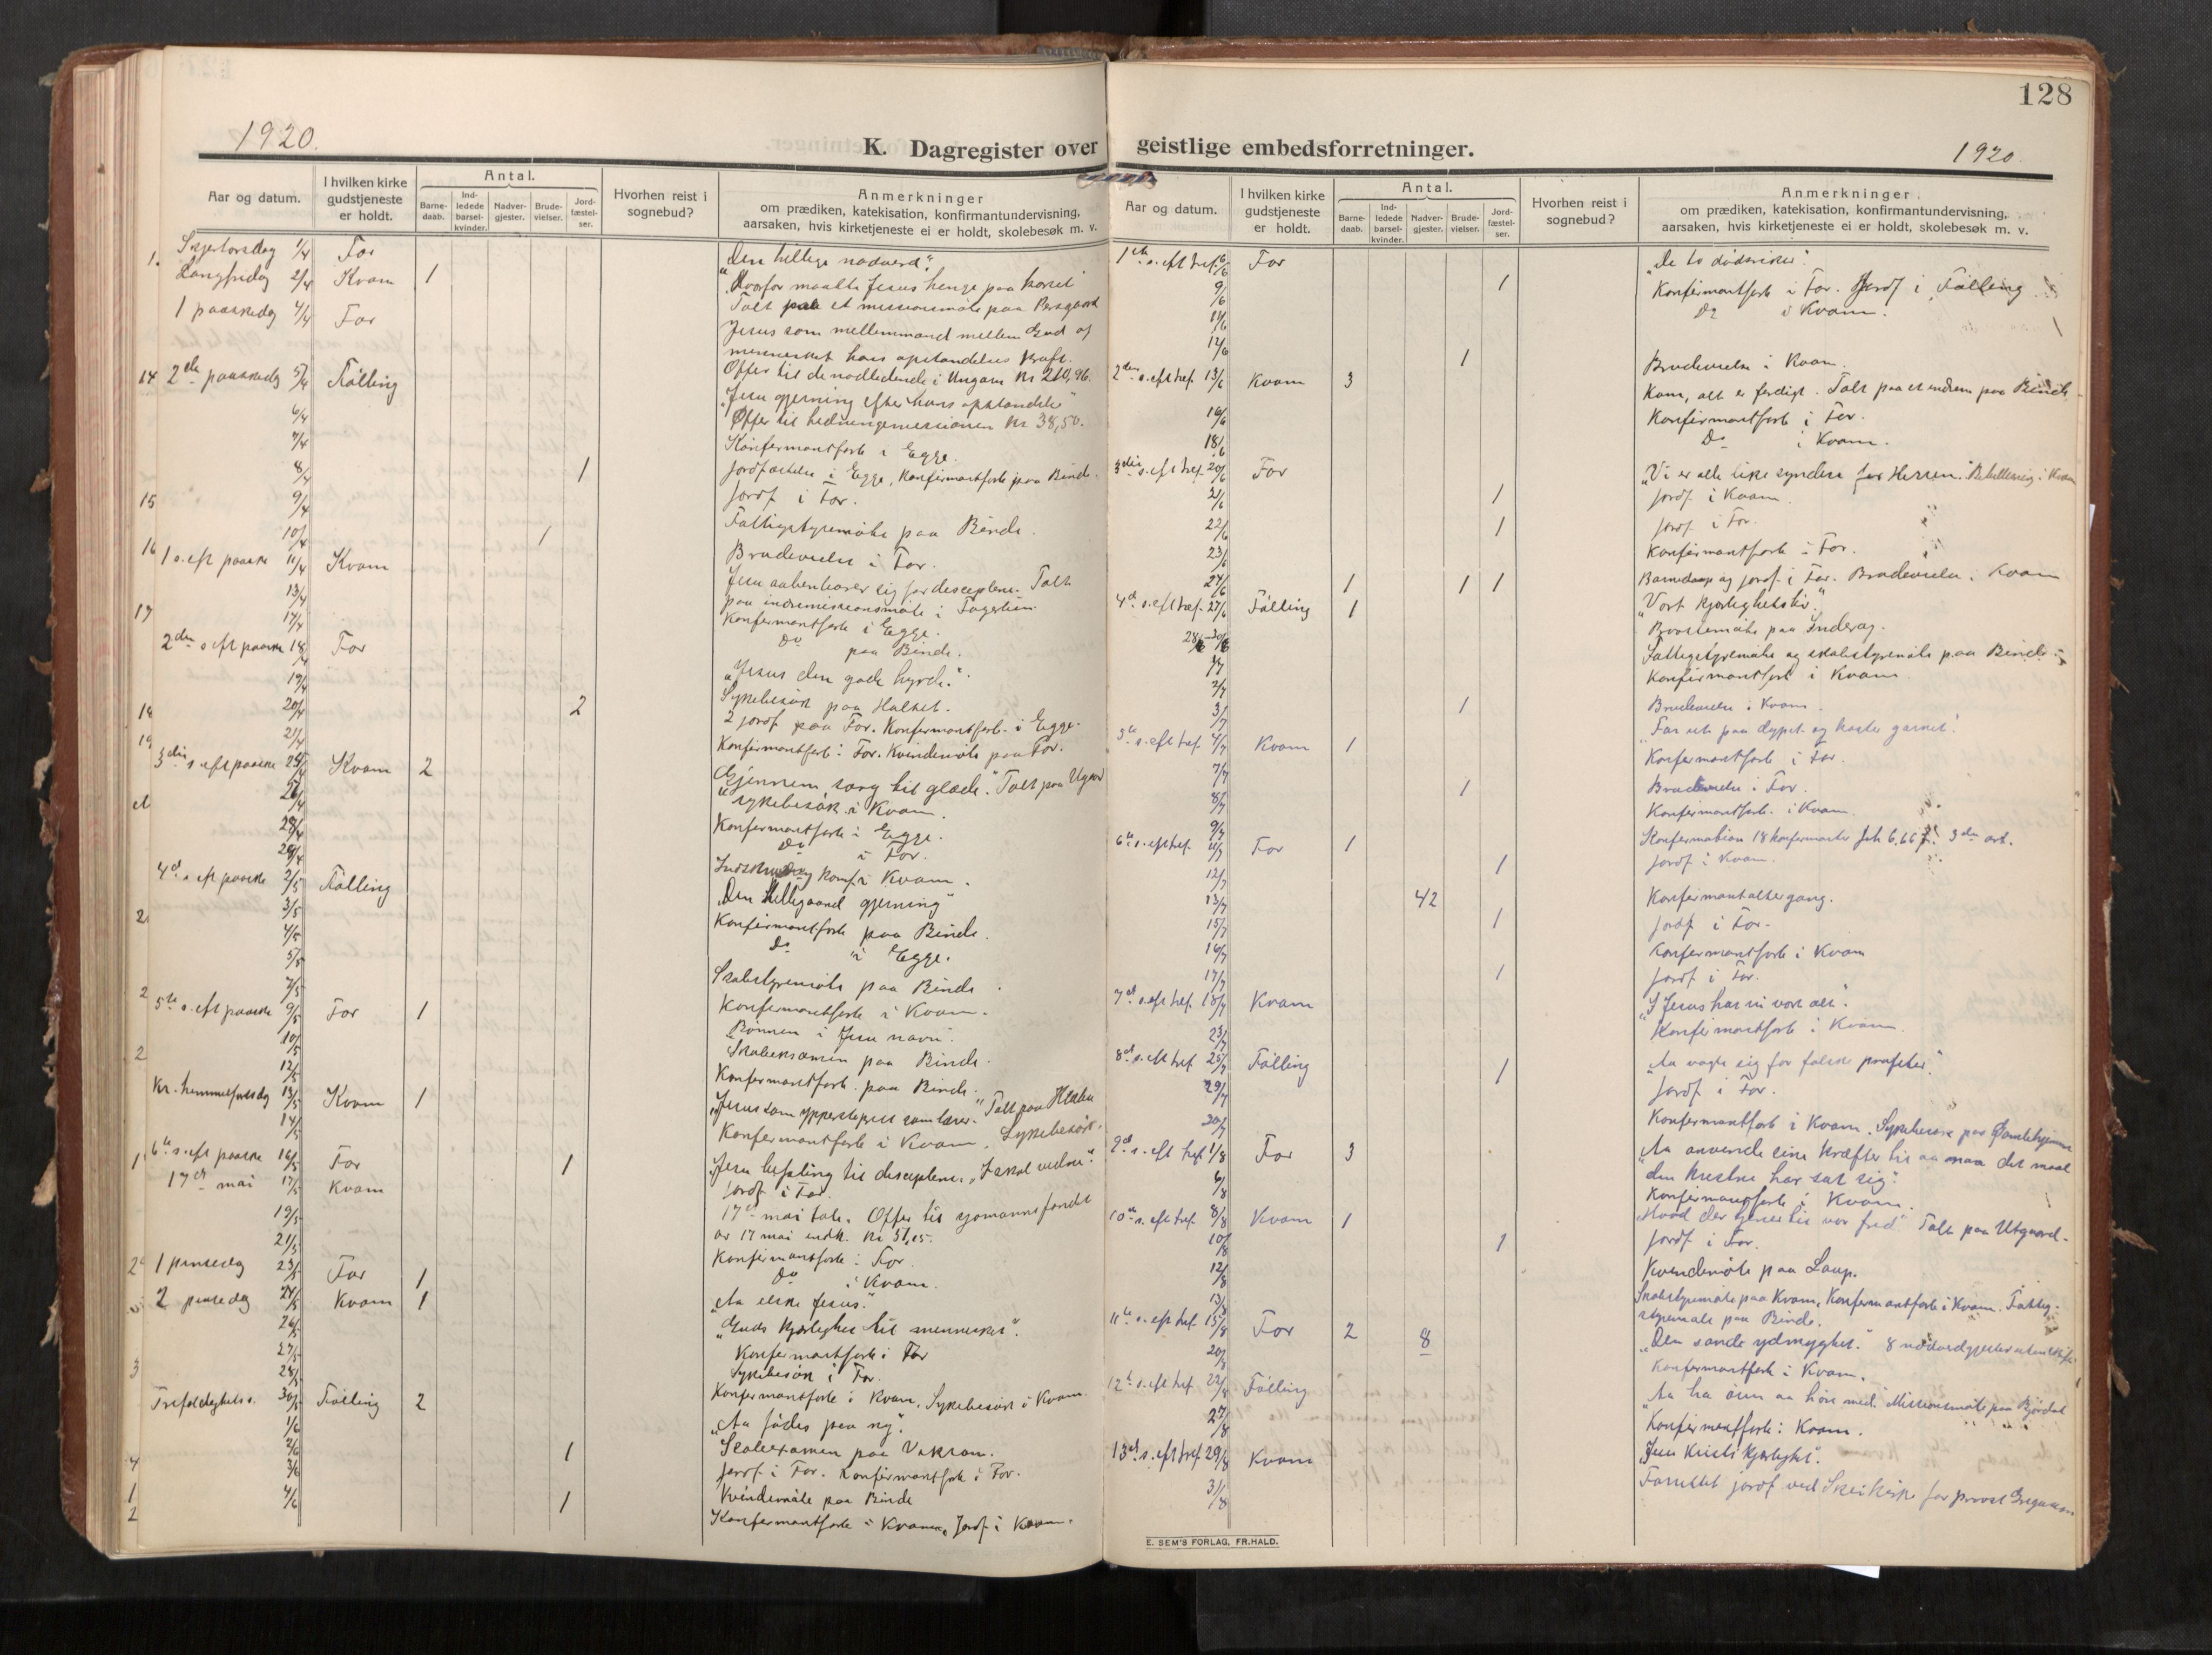 1920.
K. Dagregister over
Aar og datum.
I hvilken kirke gudstjeneste er holdt.
Antal.
Barne-daab.
Ind-ledede barsel-kvinder.
Nadver-gjester.
Brude-vielser.
Jord-fæstel-ser.
Hvorhen reist i sognebud?
Anmerkninger
om prædiken, katekisation, konfirmantundervisning,
aarsaken, hvis kirketjeneste ei er holdt, skolebesøk m. v.
Skjertorsdag 1/4 For "Den hellige nadverd".
Langfredag 2/4 Kvam 1 "Hvorfor maatte Jesus henge paa korset
Talt paa et missionsmøte paa
1 paaskedag 4/4 For Jesus som mellemmand mellem Gud og
mennesket hans opstandelses kraft.
Offer til de nødlidende i Ungarn Kr 210,96.
2den paaskedag 5/4 Følling "Jesu gjerning efter hans opstandelse"
Offer til hedningemissionen Kr 38,50.
6/4 Konfirmantforb i Egge.
7/4 Jordfæstelse i Egge, Konfirmantforb paa Binde.
8/4 1 Jordf i For.
9/4 Fattigstyremøte paa Binde.
10/4 1 Brudevielse i For.
1 s. eft paaske 11/4 Kvam Jesu aabenbarer sig for disciplene. Talt
paa indremissionsmøte i Fagerheim.
13/4 Konfirmantforb i Egge.
14/4 Do paa Binde.
2den s eft paaske 18/4 For "Jesus den gode hyrde."
19/4 Sykebesøk paa
20/4 2 2 jordf paa For. Konfirmantforb. i Egge.
21/4 Konfirmantforb i For. Kvindemøte paa For.
3die s. eft paaske 25/4 Kvam 2 "Gjennem sorg til glæde". Talt paa
sykebesøk i Kvam.
Konfirmantforb i Egge.
28/4 Do i For.
29/4 Indskrivning konf i Kvam.
4de s eft paaske 2/5 Følling "Den Helligaand gjerning"
3/5 Konfirmantforb paa Binde.
4/5 Do i Egge.
5/5 Skolestyremøte paa Binde.
7/5 Konfirmantforb i Kvam.
5te s. eft paaske 9/5 For 1 "Bønnen i Jesu navn".
10/5 Skoleeksamen paa Binde.
12/5 Konfirmantforb. paa Binde.
Kr. himmelfartsdag 13/5 Kvam 1 "Jesus som ypperstepræst som lærer." Talt paa
14/5 Konfirmantforb i Kvam. Sykebesøk.
6te s. eft paaske 16/5 For 1 "Jesu befaling til disciplene, I skal vidne".
Jordf i For.
17de mai 17/5 Kvam 17de mai tale. Offer til sjømannsfondet
av 17 mai indk. Kr 37,15.
19/5 Konfirmantforb i For.
21/5 Do i Kvam.
1 pinsedag 23/5 For 1 "Aa elske Jesus".
2 pinsedag 24/5 Kvam 1 "Guds kjærlighet til mennesket".
26/5 Konfirmantforb i For
27/5 Sykebesøk i For.
28/5 Konfirmantforb i Kvam, Sykebesøk i Kvam.
Trefoldighetss. 30/5 Følling 2 "Aa fødes paa ny".
1/6 Skoleexamen paa Vekran.
2/6 1 Jordf i For. Konfirmantforb i For.
3/6 Kvindemøte paa Binde
4/6 1 Konfirmantforb i Kvam, Jordf i Kvam.
128
geistlige embedsforretninger.
1920.
Aar og datum.
I hvilken kirke gudstjeneste er holdt.
Antal.
Barne-daab.
Ind-ledede barsel-kvinder.
Nadver-gjester.
Brude-vielser.
Jord-fæstel-ser.
Hvorhen reist i sognebud?
Anmerkninger.
om prædiken, katekisation, konfirmantundervisning,
aarsaken, hvis kirketjeneste ei er holdt, skolebesøk m. v.
1ste s. eft tref. 6/6 For "De to dødsriker".
9/6 1 Konfirmantforb i For. Jordf i Følling
11/6 Do i Kvam.
12/6 1 Brudevielse i Kvam.
2den s. eft tref. 13/6 Kvam 3 Kom, alt er ferdigt. Talt paa et indrem paa Binde
16/6 Konfirmantforb i For.
18/6 Do i Kvam.
3die s. eft tref. 20/6 For "Vi er alle like syndere for Herren."
21/6 1 Jordf. i Kvam.
22/6 1 Jordf i For.
23/6 Konfirmantforb i For.
24/6 1 1 1 Barnedaap og jordf. i For. Brudevielse i Kvam
4de s. eft tref. 27/6 Følling 1 "Vort kjærlighetsliv".
28/6-30/6 Provstemøte paa Inderøy.
1/7 Fattigstyremøte og skolestyremøte paa Binde
2/7 Konfirmantforb i Kvam.
3/7 1 Brudevielse i Kvam.
5te s. eft tref. 4/7 Kvam 1 "Far ut paa dypet og kaste garnet".
7/7 Konfirmantforb i For.
8/7 1 Brudevielse i For.
9/7 Konfirmantforb. i Kvam.
6te s. eft tref. 11/7 For 1 Konfirmation 18 konfirmanter Joh 6,66 f. 3die art.
12/7 1 Jordf i Kvam.
13/7 42 Konfirmantaltergang.
15/7 1 Jordf i For.
16/7 Konfirmantforb i Kvam
17/7 1 Jordf i For.
7de s. eft tref. 18/7 Kvam "I Jesus har vi vort alt".
23/7 Konfirmantforb i Kvam.
8de s. eft tref 25/7 Følling "Aa vogte sig for falske profeter".
29/7 1 Jordf i For.
30/7 Konfirmantforb i Kvam. Sykebesøk paa Gamlehjemme
9de s. eft tref 1/8 For 3 "Aa anvende sine kræfter til aa naa det maal
den kristne har sat sig".
6/8 Konfirmantforb i Kvam.
10de s. eft tref. 8/8 Kvam 1 "Hvad der tjener til vor fred" Talt paa Utgaard.
10/8 1 Jordf i For.
12/8 Kvindemøte paa Laup.
13/8 Skolestyremøte paa Kvam, Konfirmantforb i Kvam. Fattig-
styremøte paa Binde.
11te s. eft tref. 15/8 For 2 8 "Den sande ydmyghet". 8 nadverdgjester
20/8 Konfirmantforb i Kvam.
12te s. eft tref 22/8 Følling "Aa ha øren aa høre med". Missionsmøte paa
27/8 Konfirmantforb i Kvam.
13de s. eft tref 29/8 Kvam "Jesu Kristi kjærlighet".
31/8 Forrettet jordf ved kirke for provst
E. SEM'S FORLAG, FR.HALD.